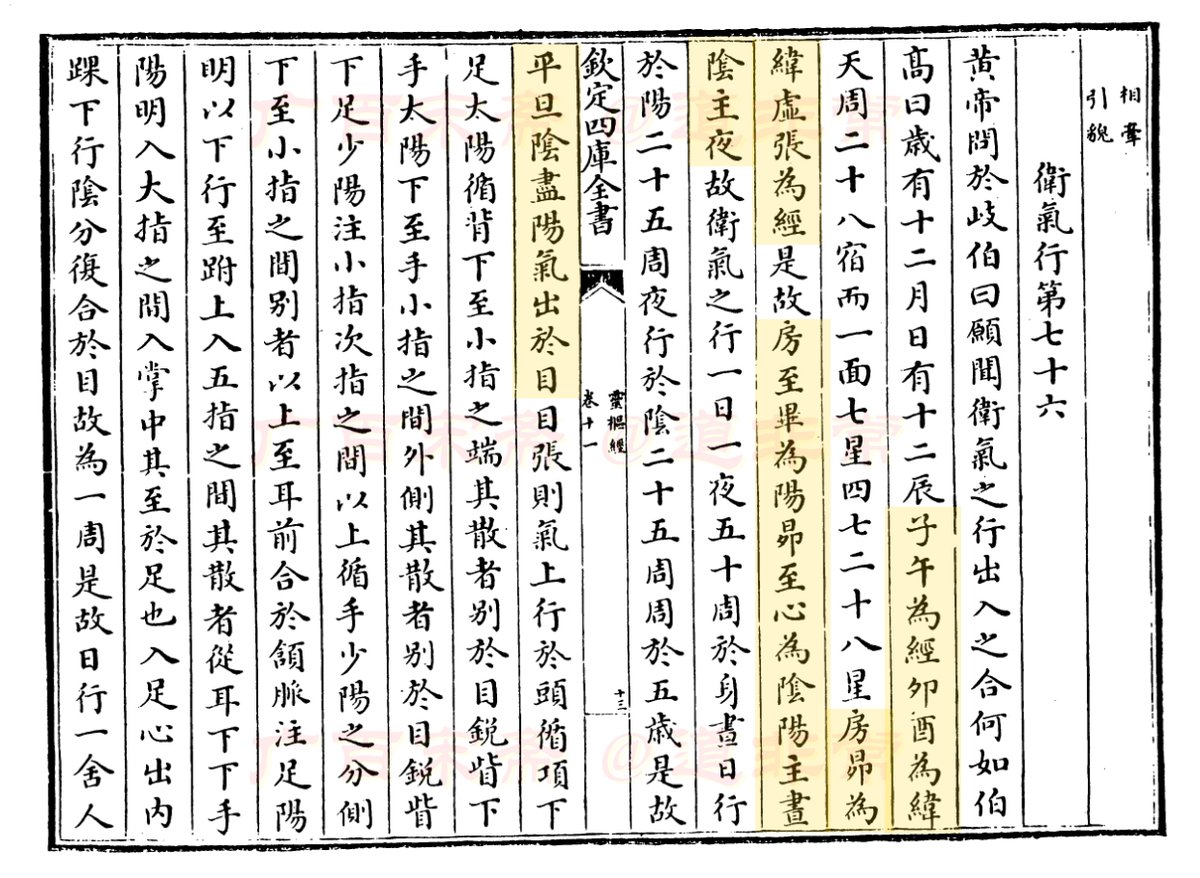 相牽
引貌
衛氣行第七十六
黄帝問於岐伯曰願聞衛氣之行出入之合何如伯
髙曰歳有十二月日有十二辰子午為經卯酉為緯
天周二十八宿而一面七星四七二十八星房昴為
緯虛張為經是故房至畢為陽昴至心為陰陽主晝
陰主夜故衛氣之行一日一夜五十周於身晝日行
於陽二十五周夜行於陰二十五周周於五歳是故
欽定四庫全書
靈樞經
卷十一
十三
平旦陰盡陽氣出於目目張則氣上行於頭循項下
足太陽循背下至小指之端其散者别於目鋭眥下
手太陽下至手小指之間外側其散者别於目鋭眥
下足少陽注小指次指之間以上循手少陽之分側
下至小指之間别者以上至耳前合於頷脈注足陽
明以下行至跗上入五指之間其散者從耳下下手
陽明入大指之間入掌中其至於足也入足心出内
踝下行陰分復合於目故為一周是故日行一舍人